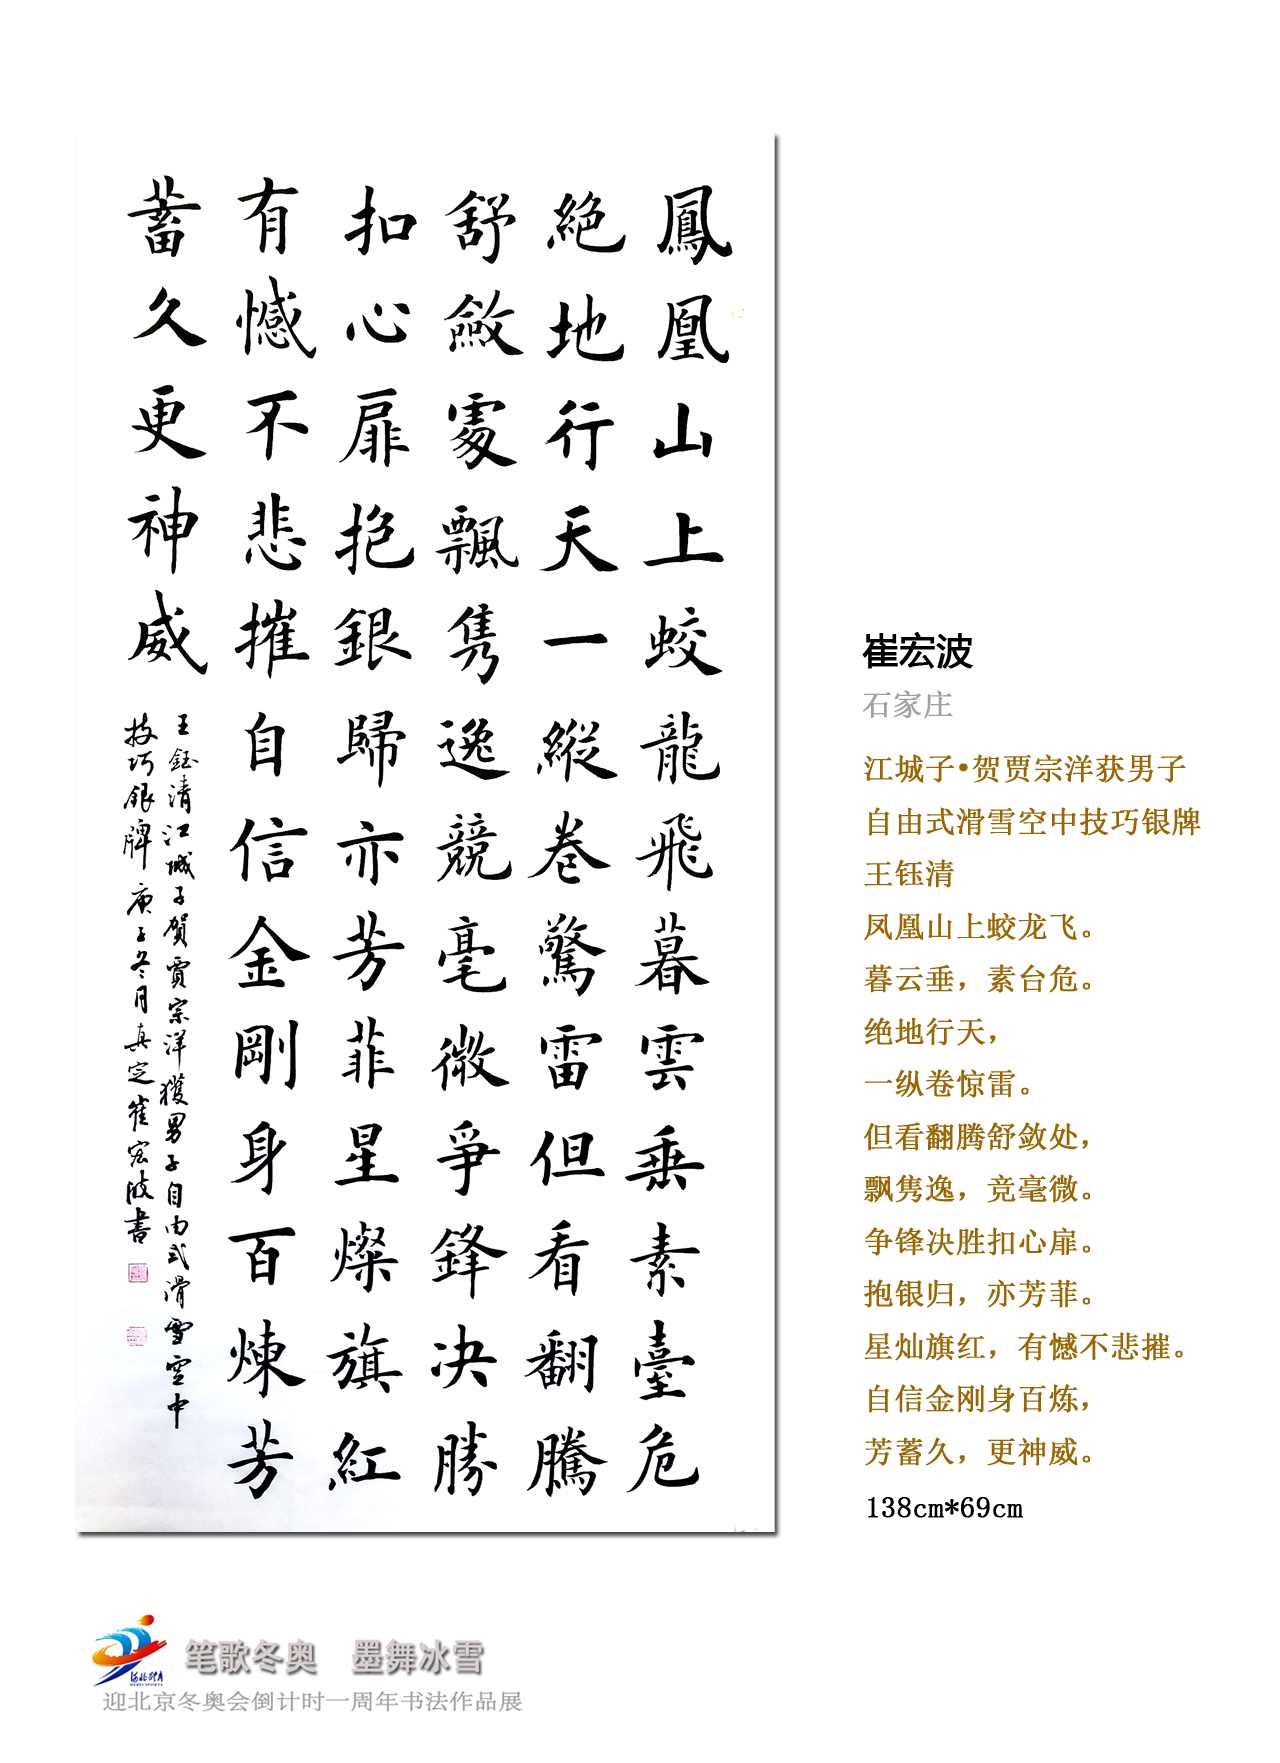 鳳凰山上蛟龍飛暮雲垂素臺危
絕地行天一縱卷驚雷但看翻騰
舒斂處飄隽逸競毫微爭鋒决勝
扣心扉抱銀歸亦芳菲星燦旗紅
有憾不悲摧自信金剛身百煉芳
蓄久更神威
王鈺清江城子賀賈宗洋獲男子自由式滑雪空中
技巧銀牌庚子冬月真定崔宏波書
崔宏波
石家庄
江城子•贺贾宗洋获男子
自由式滑雪空中技巧银牌
王钰清
凤凰山上蛟龙飞。
暮云垂，素台危。
绝地行天，
一纵卷惊雷。
但看翻腾舒敛处，
飘隽逸，竞毫微。
争锋决胜扣心扉。
抱银归，亦芳菲。
星灿旗红，有憾不悲摧。
自信金刚身百炼，
芳蓄久，更神威。
138cm*69cm
河北体育
HEBEI SPORTS
笔歌冬奥 墨舞冰雪
迎北京冬奥会倒计时一周年书法作品展